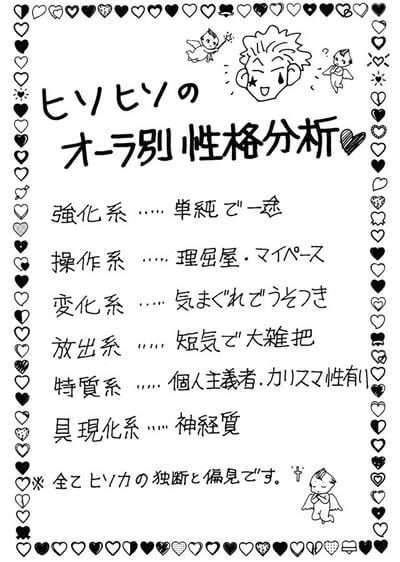 ヒソヒソの
オーラ別性格分析♥
強化系 ‥‥‥ 単純で一途
操作系 ‥‥‥ 理屈屋・マイペース
変化系 ‥‥‥ 気まぐれでうそつき
放出系 ‥‥‥ 短気で大雑把
特質系 ‥‥‥ 個人主義者・カリスマ性有り
具現化系 ‥‥‥ 神経質
※ 全てヒソカの独断と偏見です。